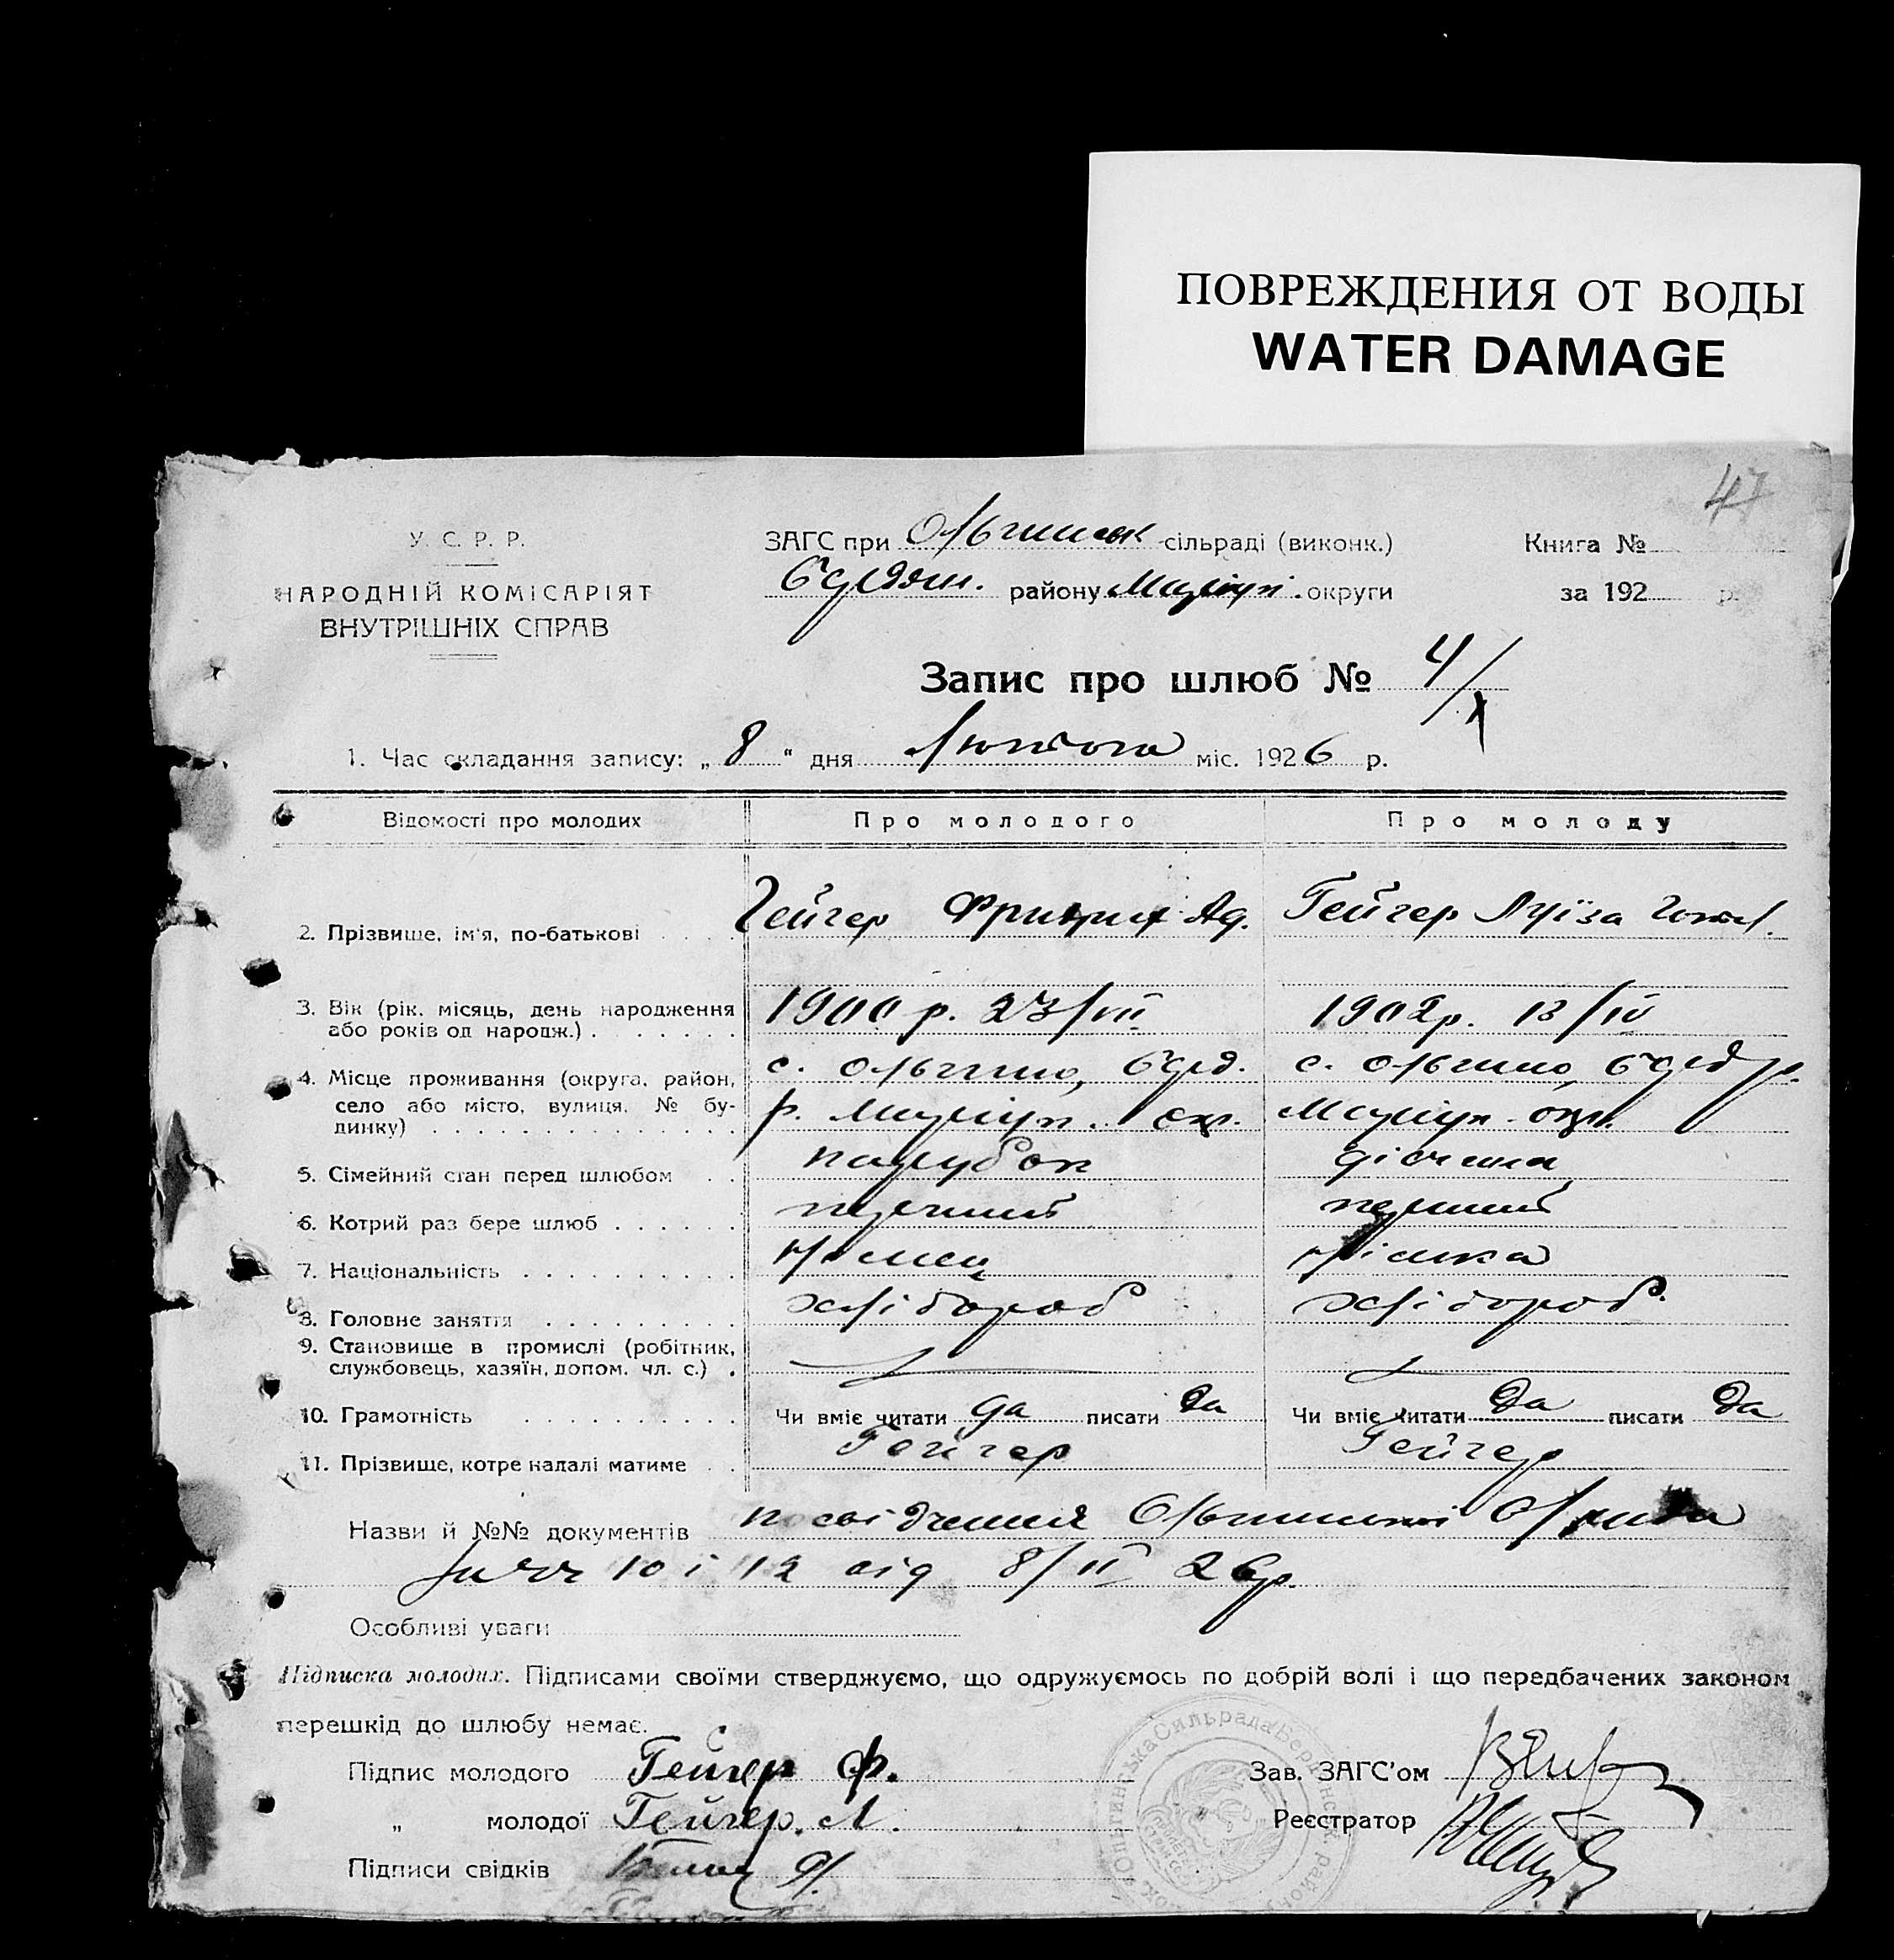 ПОВРЕЖДЕНИЯ ОТ ВОДЫ
WATER DAMAGE
47
У. С. Р. Р.
НАРОДНІЙ КОМІСАРІЯТ
ВНУТРІШНІХ СПРАВ
ЗАГС при Ольгинськ сільраді (виконк.)
району Маріуп. округи
Книга №
за 192 р.
Запис про шлюб № 4/
1. Час складання запису: „ 8 “ дня Лютого міс. 1926 р.
Відомості про молодих Про молодого Про молоду
2. Прізвище, ім'я, по-батькові Гейгер Фридрих Ад. Гейгер Луїза Готл.
3. Вік (рік, місяць, день народження
або років од народж.) 1900 р. 23/VII 1902р. 13/IV
4. Місце проживання (округа, район,
село або місто, вулиця, № бу-
динку)
с. Ольгино, с. Ольгино,
р. Маріуп. окр. Маріуп. окр.
5. Сімейний стан перед шлюбом парубок дівчина
6. Котрий раз бере шлюб перший перший
7. Національність німец німка
8. Головне заняття хлібороб хлібороб.
9. Становище в промислі (робітник,
службовець, хазяїн, допом. чл. с.)
10. Грамотність Чи вміє читати да писати да Чи вміє читати да писати да
11. Прізвище, котре надалі матиме Гейгер Гейгер
Назви й №№ документів посвідчення Ольгинської
10 і 12 від 8/II 26р.
Особливі уваги
Підписка молодих. Підписами своїми стверджуємо, що одружуємось по добрій волі і що передбачених законом
перешкід до шлюбу немає.
Підпис молодого Гейгер Ф.
„ молодої Гейгер. Л.
Підписи свідків
Зав. ЗАГС'ом
Реєстратор